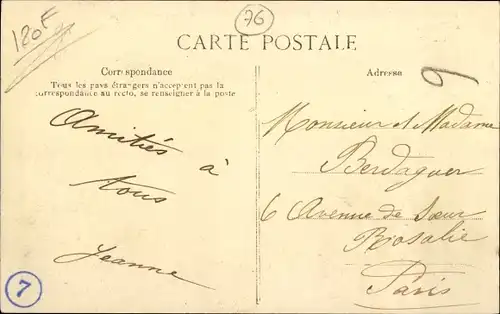 120F
76
CARTE POSTALE
Correspondance
Tous les pays étrangers n'acceptent pas la
correspondance au recto, se renseigner à la poste
Amitiés à
tous
Jeanne
7
Adresse
9
Monsieur et Madame
Berdaguer
6 Avenue de Sœur
Rosalie
Paris